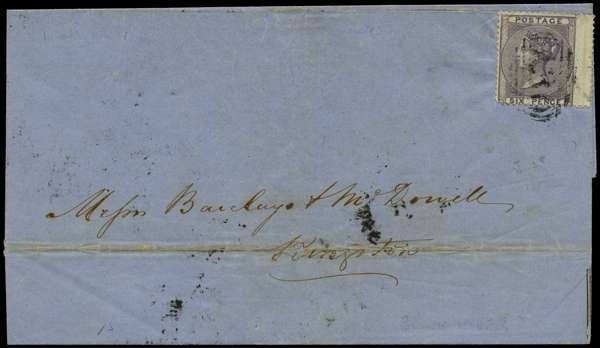 POSTAGE
SIX PENCE
Messrs Barclay & McDowell
Kingston